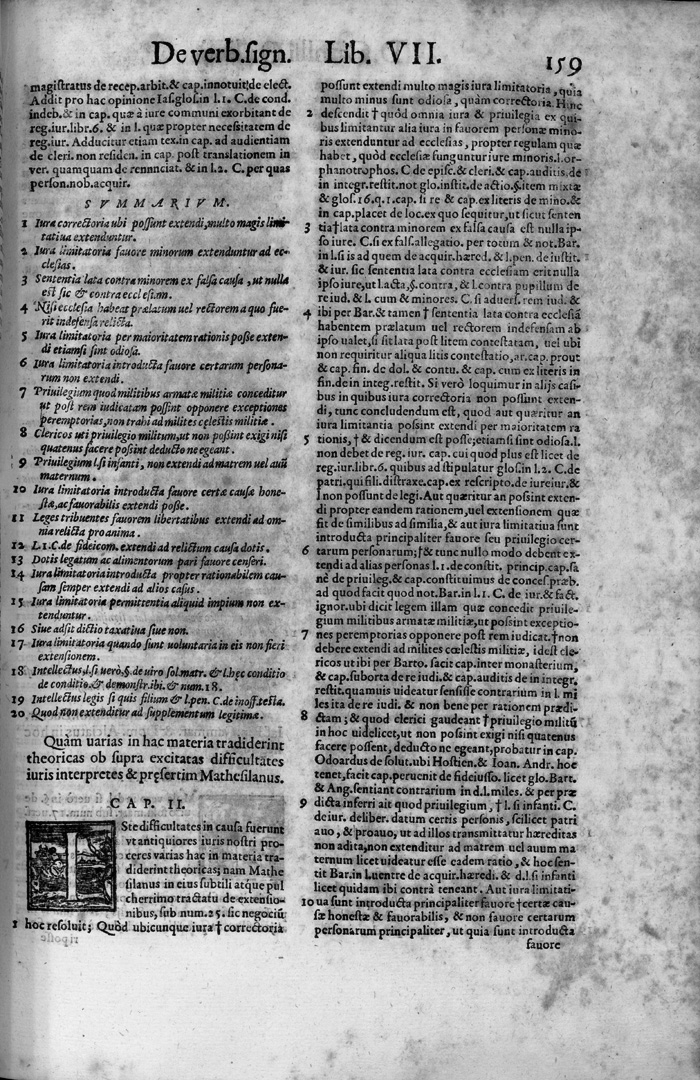 De verb. sign. Lib. VII. 159
magiſtratus de recep. arbit. & cap. innotuit; de elect.
Addit pro hac opinione Iaſ. gloſ. in l. 1. C. de cond.
indeb. & in cap. quæ à iure communi exorbitant de
reg. iur. libr. 6. & in l. quæ propter neceſſitatem de
reg. iur. Adducitur etiam tex. in cap. ad audientiam
de cleri. non reſiden. in cap. poſt translationem in
ver. quamquam de rennnciat. & in l. 2. C. per quas
perſon. nob. acquir.
SVMMARIVM.
1 Iura correctoria ubi poſſunt extendi, multo magis limi-
tatiua extenduntur.
2 Iura limitatoria fauore minorum extenduntur ad ec-
cleſias.
3 Sententia lata contra minorem ex falſa cauſa, ut nulla
eſt ſic & contra eccleſiam.
4 Niſi eccleſia habeat prælatum uel rectorem a quo fue-
rit indefenſa relicta.
5 Iura limitatoria per maioritatem rationis poſſe exten-
di etiamſi ſint odioſa.
6 Iura limitatoria introducta fauore certarum perſona-
rum non extendi.
7 Priuilegium quod militibus armatæ militiæ conceditur
ut poſt rem iudicatam poſſint opponere exceptiones
peremptorias, non trahi ad milites cęleſtis militiæ.
8 Clericos uti priuilegio militum, ut non poſſint exigi niſi
quatenus facere poſſint deducto ne egeant.
9 Priuilegium l. ſi infanti, non extendi ad matrem uel auū
maternum.
10 Iura limitatoria introducta fauore certæ cauſæ hone-
ſtæ, ac fauorabilis extendi poſſe.
11 Leges tribuentes fauorem libertatibus extendi ad om-
nia relicta pro anima.
12 L. 1. C. de fideicom. extendi ad relictum cauſa dotis.
13 Dotis legatum ac alimentorum pari fauore cenſeri.
14 Iura limitatoria introducta propter rationabilem cau-
ſam ſemper extendi ad alios caſus.
15 Iura limitatoria permittentia aliquid impium non ex-
tenduntur.
16 Siue adſit dictio taxatiua ſiue non.
17 Iura limitatoria quando ſunt uoluntaria in eis non fieri
extenſionem.
18 Intellectus, l. ſi uerò, §. de uiro ſol. matr. & l. hęc conditio
de conditio. & demonſtr. ibi. & num. 18.
19 Intellectus legis ſi quis filium & l. pen. C. de inoff. teſta.
20 Quod non extenditur ad ſupplementum legitimæ.
Quàm uarias in hac materia tradiderint
theoricas ob ſupra excitatas difficultates
iuris interpretes & pręſertim Matheſilanus.
CAP. II.
ISte difficultates in cauſa fuerunt
vt antiquiores iuris noſtri pro-
ceres varias hac in materia tra-
diderint theoricas; nam Mathe
ſilanus in eius ſubtili atque pul
cherrimo tractatu de extenſio-
nibus, ſub num. 25. ſic negociū
1 hoc reſoluit; Quòd ubicunque iura † correctoria
poſſunt extendi multo magis iura limitatoria, quia
multo minus ſunt odioſa, quàm correctoria. Hinc
2 deſcendit † quòd omnia iura & priuilegia ex qui-
bus limitantur alia iura in fauorem perſonæ mino-
ris extenduntur ad eccleſias, propter regulam quæ
habet, quòd eccleſiæ fungantur iure minoris. l. or-
phanotrophos. C. de epiſc. & cleri. & cap. auditis. de
in integr. reſtit. not gloſ. inſtit. de actio. §. item mixtæ
& gloſ. 16. q. 1. cap. ſi re & cap. ex literis de mino. &
in cap. placet de loc. ex quo ſequitur, ut ſicut ſenten
3 tia † lata contra minorem ex falſa cauſa eſt nulla ip-
ſo iure. C. ſi ex falſ. allegatio. per totum & not. Bar.
in l. ſi is ad quem de acquir. hæred. & l. pen. de iuſtit.
& iur. ſic ſententia lata contra eccleſiam erit nulla
ipſo iure, ut l. acta, §. contra, & l. contra pupillum de
re iud. & l. cum & minores. C. ſi aduerſ. rem iud. &
4 ibi per Bar. & tamen † ſententia lata contra eccleſiā
habentem prælatum uel rectorem indefenſam ab
ipſo ualet, ſi ſit lata poſt litem conteſtatam, uel ubi
non requiritur aliqua litis conteſtatio, ar. cap. prout
& cap. fin. de dol. & contu. & cap. cum ex literis in
fin. de in integ. reſtit. Si verò loquimur in alijs caſi-
bus in quibus iura correctoria non poſſunt exten-
di, tunc concludendum eſt, quod aut quæritur an
iura limitantia poſſint extendi per maioritatem ra
5 tionis, † & dicendum eſt poſſe; etiamſi ſint odioſa. l.
non debet de reg. iur. cap. cui quod plus eſt licet de
reg. iur. libr. 6. quibus ad ſtipulatur gloſ. in l. 2. C. de
patri. qui fili. diſtraxe. cap. ex reſcripto. de iureiur, &
l non poſſunt de legi. Aut quæritur an poſſint exten-
di propter eandem rationem, uel extenſionem quæ
fit de ſimilibus ad ſimilia, & aut iura limitatiua ſunt
introducta principaliter fauore ſeu priuilegio cer-
6 tarum perſonarum; † & tunc nullo modo debent ex-
tendi ad alias perſonas l. 1. de conſtit. princip. cap. ſa
nè de priuileg. & cap. conſtituimus de conceſ. præb.
ad quod facit quod not. Bar. in l. 1. C. de iur. & fact.
ignor. ubi dicit legem illam quæ concedit priuile-
gium militibus armatæ militiæ, ut poſſint exceptio-
7 nes peremptorias opponere poſt rem iudicat. † non
debere extendi ad milites cœleſtis militiæ, ideſt cle-
ricos ut ibi per Barto. facit cap. inter monaſterium,
& cap. ſuborta de re iudi. & cap. auditis de in integr.
reſtit. quamuis uideatur ſenſiſſe contrarium in l. mi
les ita de re iudi. & non bene per rationem prædi-
8 ctam; & quod clerici gaudeant † priuilegio militū
in hoc uidelicet, ut non poſſint exigi niſi quatenus
facere poſſent, deducto ne egeant, probatur in cap.
Odoardus de ſolut. ubi Hoſtien. & Ioan. Andr. hoc
tenet, facit cap. peruenit de fideiuſſo. licet glo. Bart.
& Ang. ſentiant contrarium in d. l. miles. & per præ
9 dicta inferri ait quod priuilegium, † l. ſi infanti. C.
de iur. deliber. datum certis perſonis, ſcilicet patri
auo, & proauo, ut ad illos transmittatur hæreditas
non adita, non extenditur ad matrem uel auum ma
ternum licet uideatur eſſe eadem ratio, & hoc ſen-
tit Bar. in l. uentre de acquir. hæredi. & d. l. ſi infanti
licet quidam ibi contrà teneant. Aut iura limitati-
10 ua ſunt introducta principaliter fauore † certæ cau-
ſæ honeſtæ & fauorabilis, & non fauore certarum
perſonarum principaliter, ut quia ſunt introducta
fauore